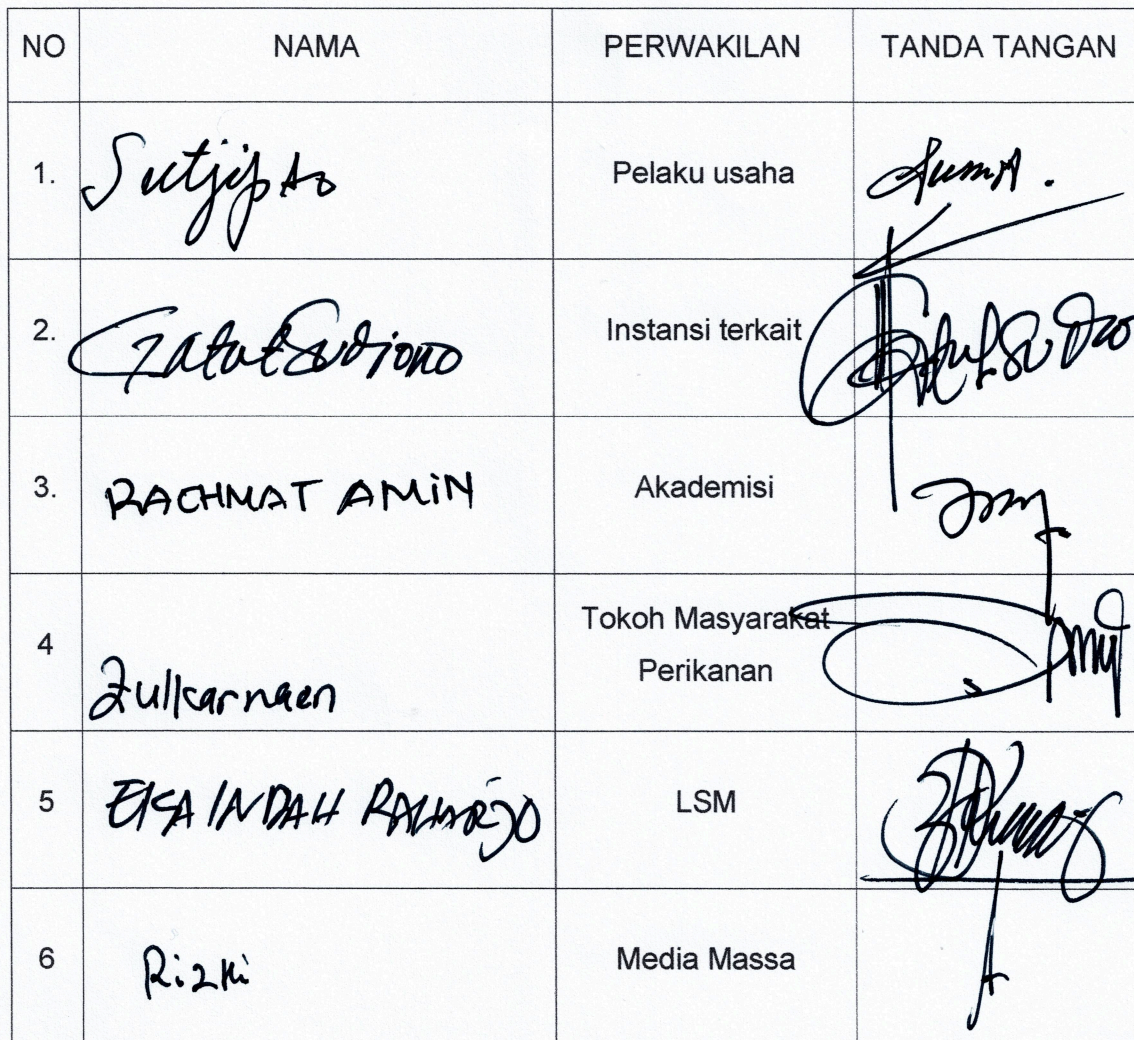 NO NAMA PERWAKILAN TANDA TANGAN
1. Sutjipto Pelaku usaha
2. Gatot Sudiono Instansi terkait
3. RACHMAT AMIN Akademisi
4 Zulkarnaen Tokoh Masyarakat
Perikanan
5 EKA INDAH RAHARJO LSM
6 Rizki Media Massa